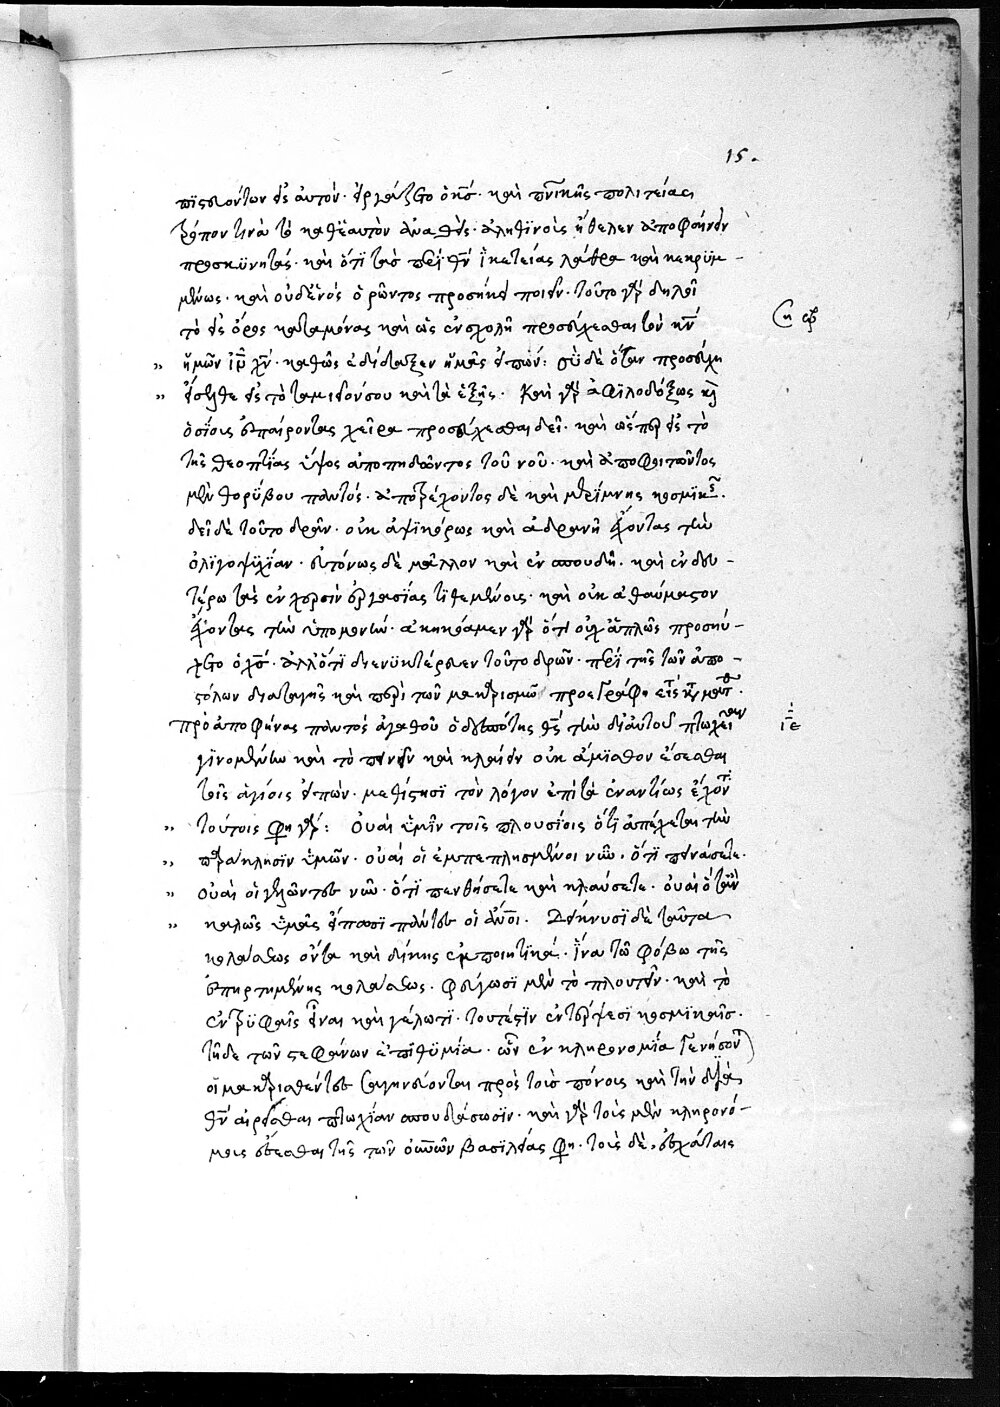 15.
πϊστευόντων εἰς αὐτὸν· εἰργάζετο ὁ κ̅ς̅· καὶ πν̅ικῆς πολιτείας
τρόπον τινὰ τὸ καθ' ἑαυτὸν ἀναθεὶς· ἀληθϊνοὺς ἤθελεν ἀποφαίνειν
προσκϋνητάς· καὶ ὅτϊ τὰς περὶ ἱκετείας λάθρα καὶ κεκρϋμ-
μένως· καὶ οὐδενὸς ὁρῶντος προσῆκε ποιεῖν· τοῦτο γὰρ δηλοῖ
τὸ εἰς ὄρος καταμόνας καὶ ὡς ἐν σχολῇ προσεύχεσθαι τὸν κ̅ν̅
ἡμῶν ι̅ν̅ χ̅ν̅· καθὼς ἐδίδαξεν ἡμᾶς εἰπών: σὺ δὲ ὅταν προσεύχῃ
εἴσελθε εἰς τὸ ταμιεῖόν σου καὶ τὰ ἑξῆς· Καὶ γὰρ ἀφϊλοδόξως καὶ
ὁσίους ἐπαίροντας χεῖρα προσεύχεσθαι δεῖ· καὶ ὥσπερ εἰς τὸ
τῆς θεοπτίας ὕψος ἀποπηδῶντος τοῦ νοῦ· καὶ ἀποφοιτῶντος
μὲν θορύβου παντός· ἀποτρέχοντος δὲ καὶ μερίμνης κοσμϊκῆς·
δεῖ δὲ τοῦτο δρᾶν· οὐκ ἁψϊκόρως καὶ ἀδρανῆ ἔχοντας τὴν
ὀλϊγοψϋχίαν· εὐτόνως δὲ μᾶλλον καὶ ἐν σπουδῇ· καὶ ἐν δευ-
τέρω τὰς ἐν χερσὶν ἐργασίας τϊθεμένους· καὶ οὐκ ἀθαύμαστον
ἔχοντας τὴν ὑπομονὴν· ἀκηκόαμεν γὰρ ὅτι οὐχ ἁπλῶς προσηύ-
χετο ὁ χ̅ς̅· ἀλλ' ὅτϊ διενϋκτέρευεν τοῦτο δρῶν· περὶ τῆς τῶν ἀπο-
στόλων διαταγῆς καὶ περὶ τῶν μακαρισμῶν προεγράφη εἰς τὸν κατὰ ματθ·
πρὸ ἀποφήνας παντὸς ἀγαθοῦ ὁ δεσπότης τὴν δι' αὐτοῦ πτωχείαν
γϊνομένην καὶ τὸ πεινεῖν καὶ κλαίειν οὐκ ἄμϊσθον ἔσεσθαι
τοῖς ἁγίοις εἰπών· μεθίστησϊ τὸν λόγον ἐπὶ τὰ ἐναντίως ἔχοντα
τούτοις φη γὰρ: Οὐαὶ ὑμῖν τοῖς πλουσίοις ὅτϊ ἀπέχετε τὴν
παράκλησϊν ὑμῶν· οὐαὶ οἱ ἐμπεπλησμένοι νῦν· ὅτϊ πεινάσετε·
οὐαὶ οἱ γελῶντες νῦν· ὅτϊ πενθήσετε καὶ κλαύσετε· οὐαὶ ὅταν
καλῶς ὑμᾶς εἴπωσϊ πάντες οἱ α̅ν̅οι· Δείκνυσϊ δὲ ταῦτα
κολάσεως ὄντα καὶ δίκης ἐμποιητϊκά· ἵνα τῷ φόβω τῆς
ἐπηρτημένης κολάσεως· φεύγωσϊ μὲν τὸ πλουτεῖν· καὶ τὸ
ἐν τρϋφαῖς εἶναι καὶ γέλωτι· τουτέστϊν ἐν τέρψεσϊ κοσμϊκαῖς·
τῇ δε τῶν στεφάνων ἐπϊθϋμία· ὧν ἐν κληρονομίᾳ γενήσονται
οἱ μακαρισθέντες
πρὸς τοὺς πόνους καὶ τὴν διὰ
θ̅ν̅ αἱρεῖσθαι πτωχίαν σπουδάσωσϊν· καὶ γὰρ τοὺς μὲν κληρονό-
μους ἔσεσθαι τῆς τῶν ο̅υ̅νῶν βασϊλείας φη· τοὺς δὲ, ἐσχάταις